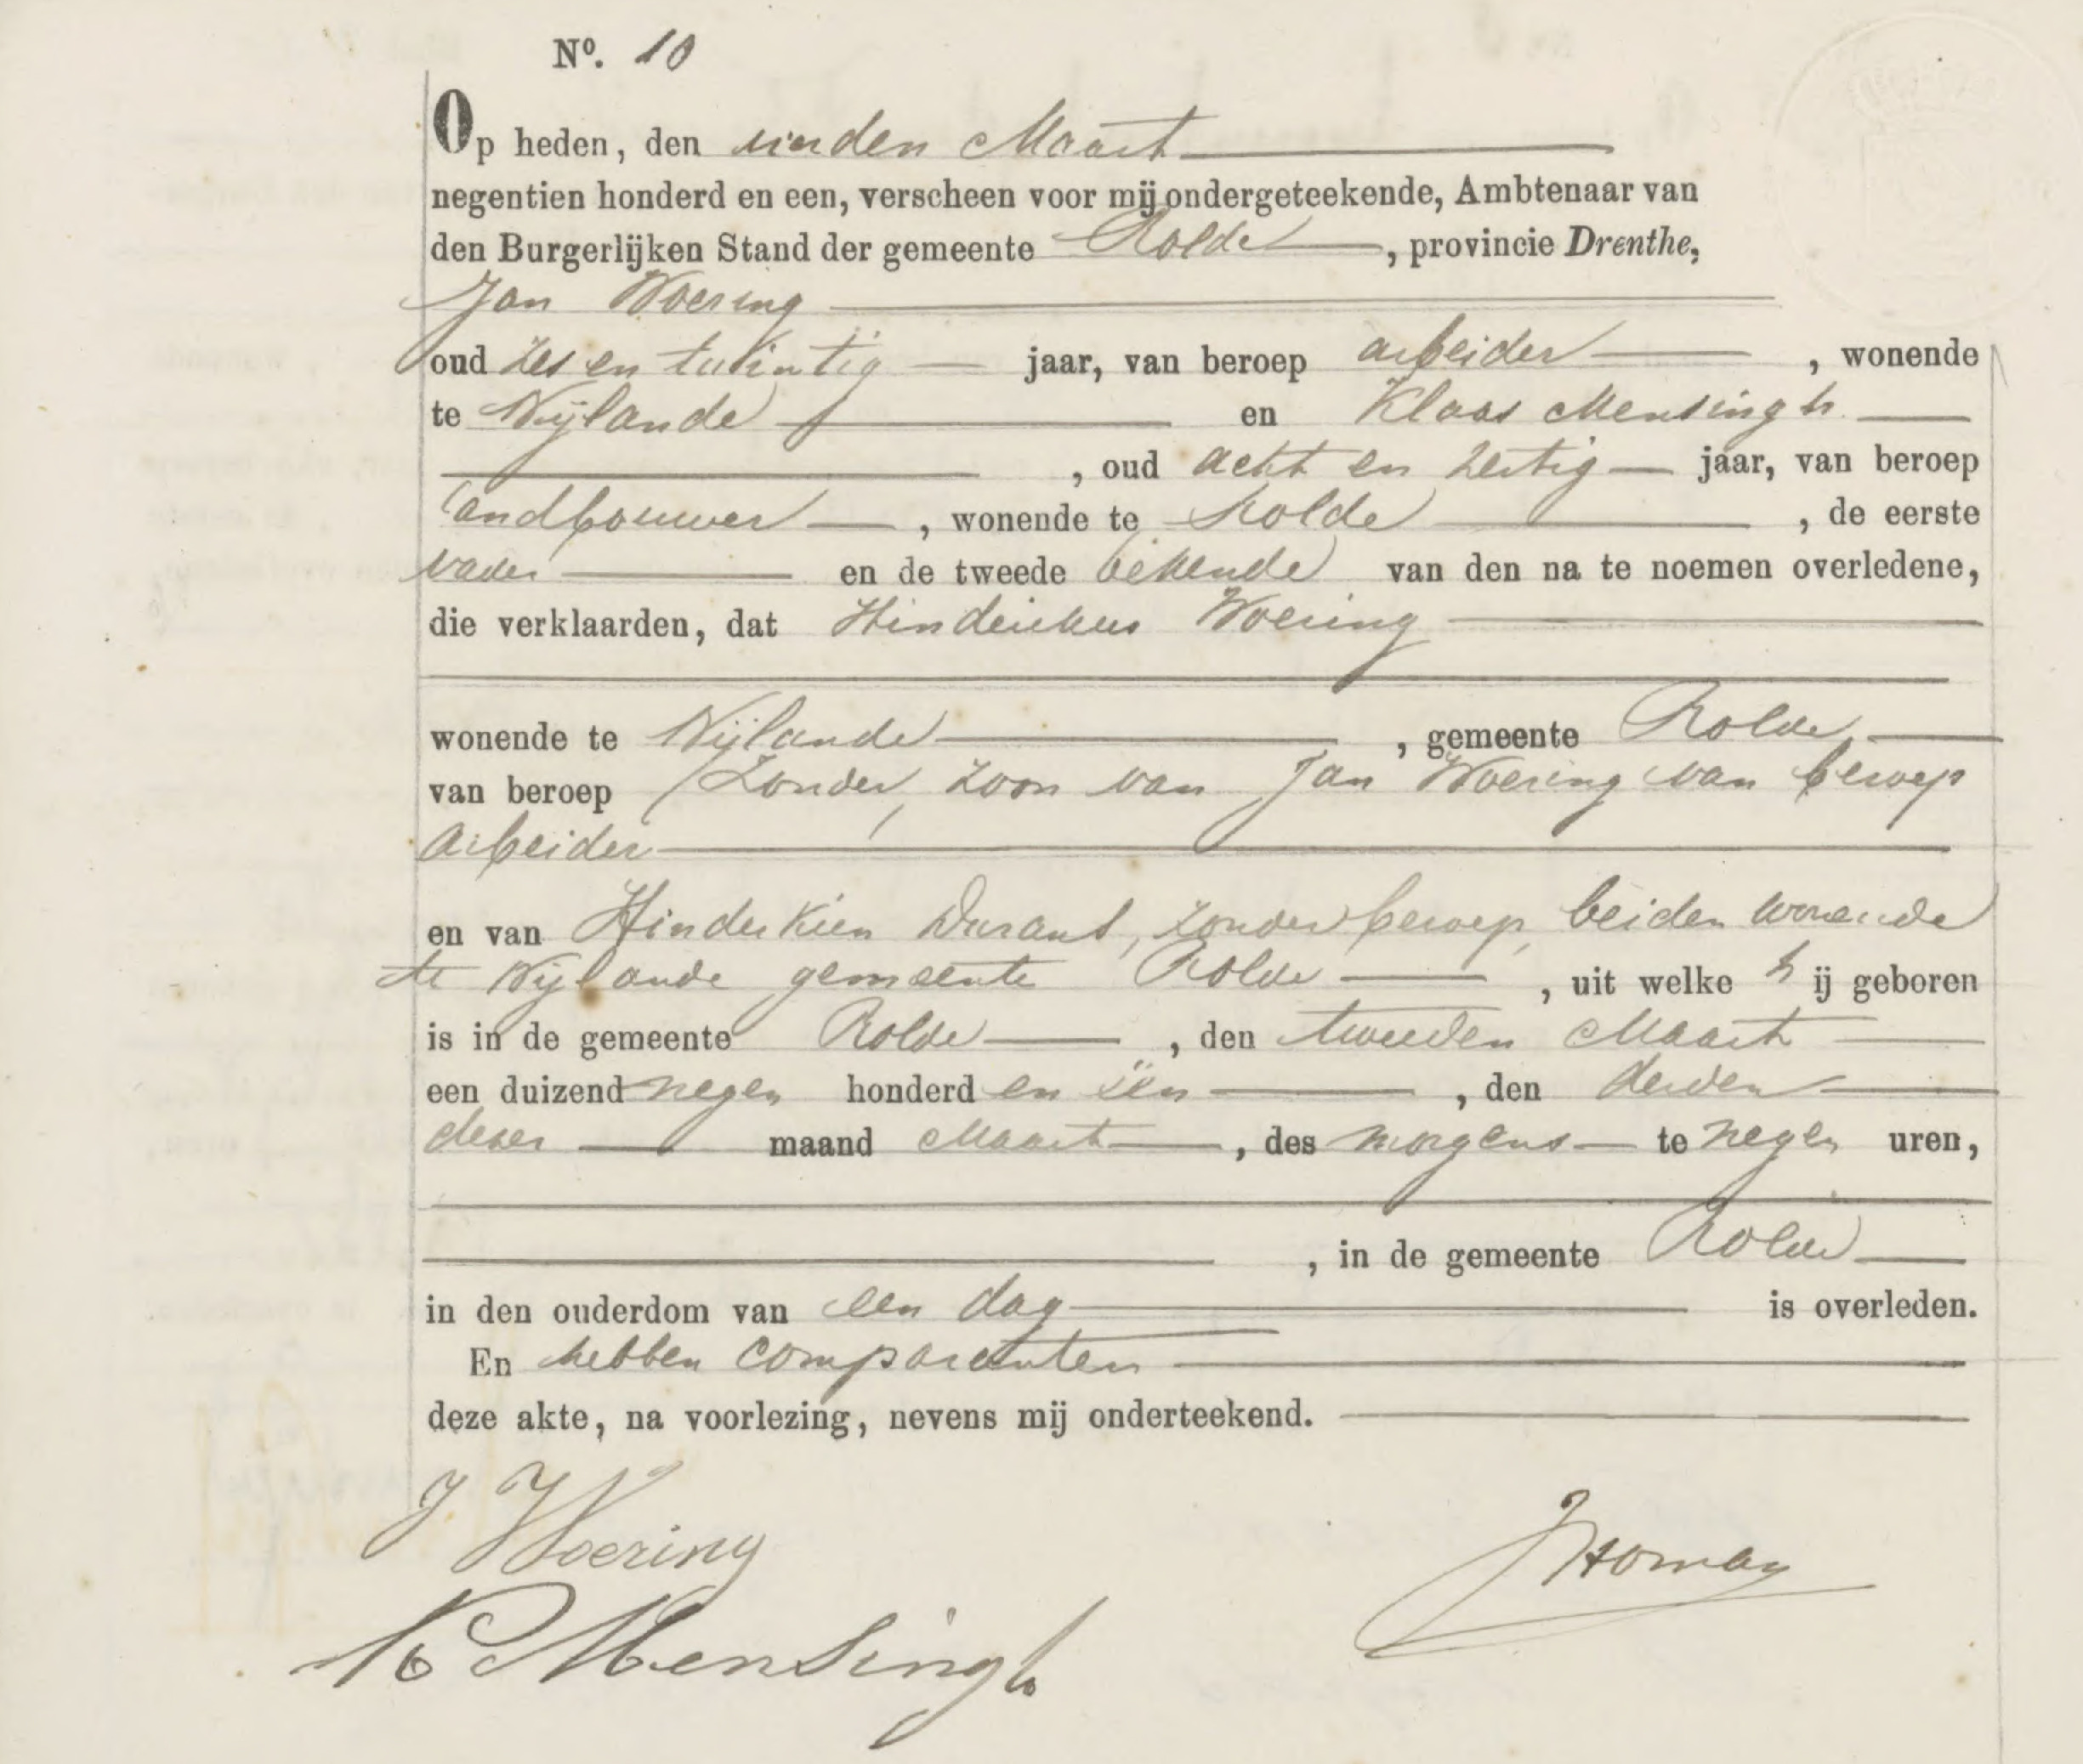 Nº. 10
Op heden, den vierden Maart
negentien honderd en een, verscheen voor mij ondergeteekende, Ambtenaar van
den Burgerlijken Stand der gemeente Rolde, provincie Drenthe,
Jan Woering
oud zes en twintig jaar, van beroep arbeider, wonende
te Nijlande en Klaas Mensingh
, oud acht en zestig jaar, van beroep
landbouwer, wonende te Rolde, de eerste
vader en de tweede bekende van den na te noemen overledene,
die verklaarden, dat Hinderikus Woering
wonende te Nijlande, gemeente Rolde
van beroep zonder, zoon van Jan Woering van beroep
arbeider
en van Hinderkien Durant, zonder beroep, beiden wonende
te Nijlande gemeente Rolde, uit welke hij geboren
is in de gemeente Rolde, den tweeden Maart
een duizend negen honderd en één, den derden
dezer maand Maart, des morgens te negen uren,
, in de gemeente Rolde
in den ouderdom van een dag is overleden.
En hebben comparanten
deze akte, na voorlezing, nevens mij onderteekend.
J Woering
K Mensingh
JHoman